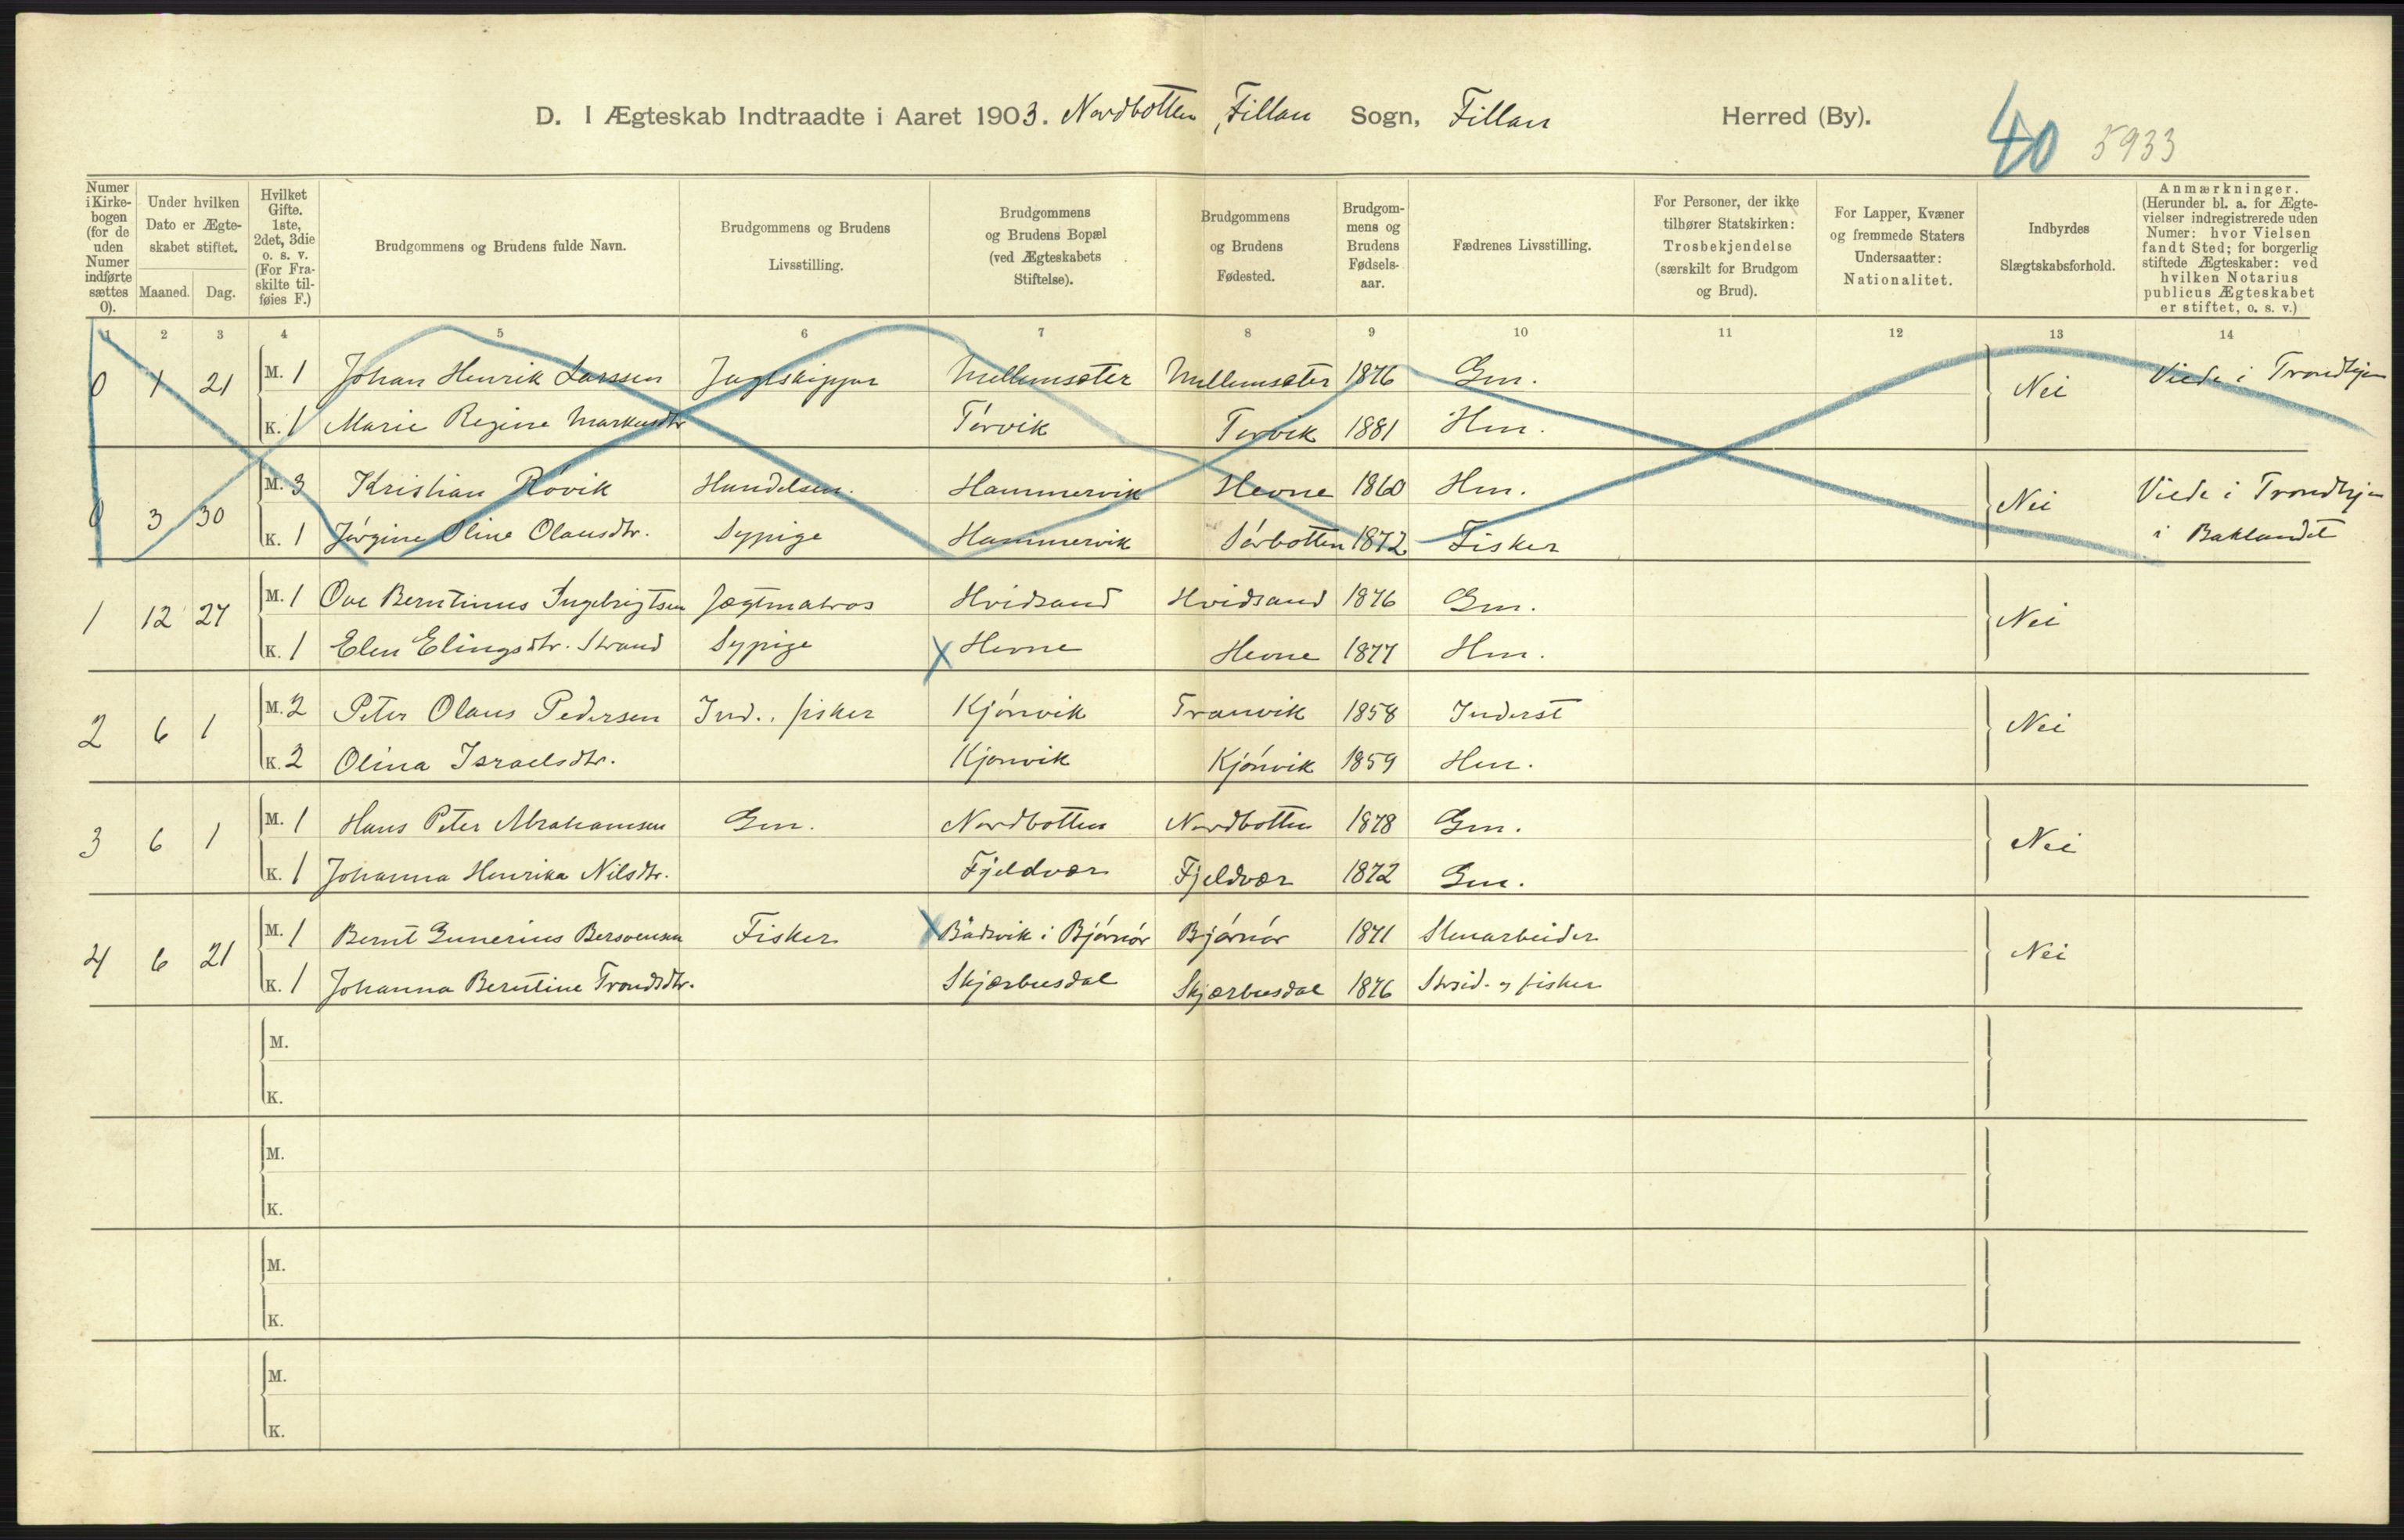 D. I Ægteskab Indtraadte i Aaret 1903. Nordbotten, Fillan Sogn, Fillan Herred (By). 40 5933
Numer i Kirke-bogen (for de uden Numer indførte sættes 0).
Under hvilken Dato er Ægte-skabet stiftet.
Maaned. Dag.
Hvilket Gifte. 1ste, 2det, 3die o. s. v. (For Fra-skilte til-føies F.)
Brudgommens og Brudens fulde Navn.
Brudgommens og Brudens Livsstilling.
Brudgommens og Brudens Bopæl (ved Ægteskabets Stiftelse).
Brudgommens og Brudens Fødested.
Brudgom-mens og Brudens Fødsels-aar.
Fædrenes Livsstilling.
For Personer, der ikke tilhører Statskirken: Trosbekjendelse (særskilt for Brudgom og Brud).
For Lapper, Kvæner og fremmede Staters Undersaatter: Nationalitet.
Indbyrdes Slægtskabsforhold.
Anmærkninger. (Herunder bl. a. for Ægte-vielser indregistrerede uden Numer: hvor Vielsen fandt Sted; for borgerlig stiftede Ægteskaber: ved hvilken Notarius publicus Ægteskabet er stiftet, o. s. v.)
1 2 3 4 5 6 7 8 9 10 11 12 13 14
0 1 21 M. 1 Johan Henrik Larssen Jagtskipper Mellemsæter Mellemsæter 1876 Gm. Nei Viede i Trondhjem
K. 1 Marie Regine Markusdtr Tørvik Tørvik 1881 Hm.
0 3 30 M. 3 Kristian Røvik Handelsm. Hammervik Hevne 1860 Hm. Nei Viede i Trondhjem
K. 1 Jørgine Oline Olausdtr. Sypige Hammervik Sørbotten 1872 Fisker i Baklandet
1 12 27 M. 1 Ove Berntinus Ingebrigtsen Jægtmatros Hvidsand Hvidsand 1876 Gm. Nei
K. 1 Elen Elingsdtr. Strand Sypige X Hevne Hevne 1877 Hm.
2 6 1 M. 2 Peter Olaus Pedersen Ind., fisker Kjønvik Tranvik 1858 Inderst Nei
K. 2 Olina Israelsdtr. Kjønvik Kjønvik 1859 Hm.
3 6 1 M. 1 Hans Peter Abrahamsen Gm. Nordbotten Nordbotten 1878 Gm. Nei
K. 1 Johanna Henrika Nilsdtr. Fjeldvær Fjeldvær 1872 Gm.
4 6 21 M. 1 Bernt Gunerius Bersvensen Fisker X Bådsvik i Bjørnør Bjørnør 1871 Stenarbeider Nei
K. 1 Johanna Berntine Trondsdtr. Skjærbusdal Skjærbusdal 1876 Strsid. og fisker
M.
K.
M.
K.
M.
K.
M.
K.